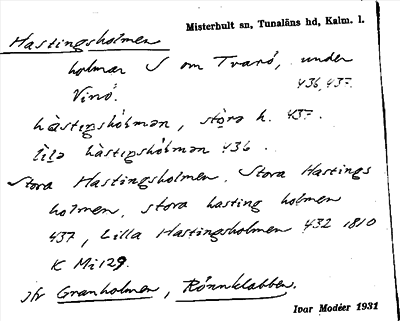 Misterhult sn, Tunaläns hd, Kalm. l.
Hastingsholmen
holmar S om Tvarö, under
436, 437.
Vinö.
hàstıŋshólmən, stòra h. 437.
lìla hàstıŋshólmən 436.
Stora Hastingsholmen, Stora Hastings
holmen, stora hasting holmen
437, Lilla Hastingsholmen 432 1810
K Mi 129.
jfr Granholmen, Rönnklabben.
Ivar Modéer 1931